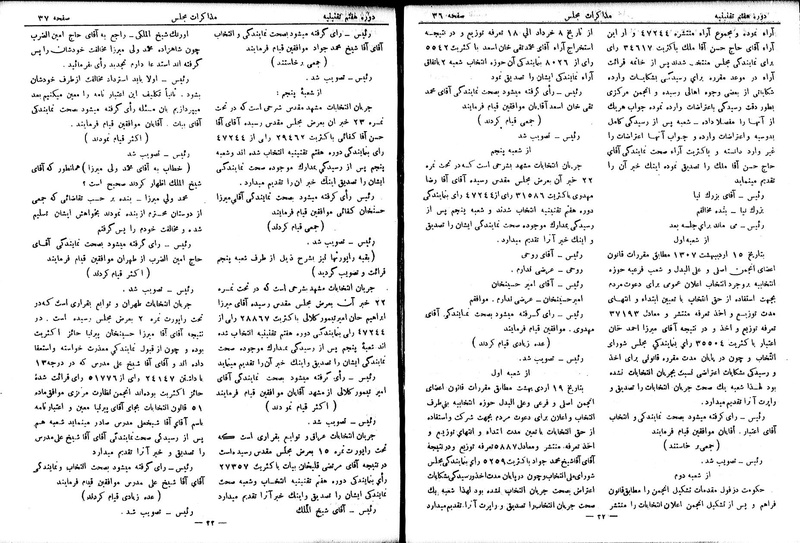 دوره هفتم تقنینیه مذاکرات مجلس صفحه ۳۶
آراء نموده و مجموع آراء منتشره ۴۷۲۴۴ و از این
آراء آقای حاج حسن آقا ملك باکثریت ۳۴۶۱۷ رأی
برای نمایندگی مجلس منتخب شدند پس از خاتمه قرائت
آراء در موعد مقرره برای رسیدگی بشکایات وارده
شکایاتی از بعضی وجوه اهالی رسیده و انجمن مرکزی
بطور دقت رسیدگی باعتراضات وارده نموده جواب هریك
از آنها را مفصلا داده – شعبه پس از رسیدگی کامل
بدوسیه و اعتراضات وارده و جواب آنها اعتراضات را
غیر وارد دانسته و باکثریت آراء صحت نمایندگی آقای
حاج حسن آقا ملك را تصدیق نموده اینك خبر آن را
تقدیم مینماید
رئیس – آقای بزرك نیا
بزرك نیا – بنده مخالفم
رئیس – می ماند برای جلسه بعد
از شعبه اول
بتاریخ ۱۵ اردیبهشت ۱۳۰۷ مطابق مقررات قانون
اعضای انجمن اصلی و علی البدل و شعب فرعیه حوزه
انتخابیه بروجرد انتخاب اعلان عمومی برای دعوت مردم
بجهت استفاده از حق انتخاب با تعیین ابتداء و انتهای
مدت توزیع و اخذ تعرفه منتشر و معادل ۳۷۱۹۳
تعرفه توزیع و اخذ و در نتیجه آقای میرزا احمد خان
اعتبار باکثریت ۳۵۵۰۴ رأی بنمایندگی مجلس شورای
انتخاب و چون در پایان مدت مقرره قانونی برای اخذ
و رسیدگی بشکایات اعتراضی نسبت بجریان انتخابات نشده
بود لهذا شعبه يك صحت جریان انتخابات را تصدیق و
راپرت آنرا تقدیم میدارد.
رئیس – رأی گرفته میشود بصحت نمایندگی و انتخاب
آقای اعتبار. آقایان موافقین قیام فرمایند
(جمعی برخاستند)
رئیس – تصویب شد.
از شعبه دوم
حکومت دزفول مقدمات تشکیل انجمن را مطابق قانون
فراهم و پس از تشکیل انجمن اعلان انتخابات را منتشر
از تاریخ ۸ خرداد الی ۱۸ تعرفه توزیع و در نتیجه
استخراج آراء آقای محمد تقی خان اسعد باکثریت ۵۵۴۲
رأی از ۸۰۲۶ رأی بنمایندگی آن حوزه انتخاب شعبه ۲ باتفاق
صحت نمایندگی ایشان را تصدیق نمود
رئیس – رأی گرفته میشود بصحت نمایندگی آقای محمد
تقی خان اسعد آقایان موافقین قیام فرمایند
(جمعی قیام کردند)
رئیس – تصویب شد
از شعبه پنجم
جریان انتخابات مشهد بشرحی است که در تحت نمره
۲۲ خبر آن بعرض مجلس مقدس رسیده آقای آقا رضا
مهدوی باکثریت ۳۱۵۸۶ رأی از ۴۷۲۴۴ رأی بنمایندگی
دوره هفتم تقنینیه انتخاب شدند و شعبه پنجم پس از
رسیدگی بمدارك موجوده صحت نمایندگی ایشان را تصدیق
و اینك خبر آنرا تقدیم میدارد.
رئیس – آقای روحی
روحی – عرضی ندارم.
رئیس – آقای امیر حسینخان
امیر حسینخان – عرضی ندارم. موافقم
رئیس – رأی گرفته میشود بصحت نمایندگی آقای
مهدوی. آقایان موافقین قیام فرمایند
(عده زیادی قیام کردند)
رئیس – تصویب شد.
از شعبه اول
بتاریخ ۱۹ اردیبهشت مطابق مقررات قانون اعضای
انجمن اصلی و فرعی و علی البدل حوزه انتخابیه نی‌طرف
انتخاب و اعلان برای دعوت مردم بجهت شرکت و استفاده
از حق انتخابات با تعیین مدت ابتداء و انتهای توزیع و
اخذ تعرفه منتشر و معادل ۵۸۸۷ تعرفه توزیع و در نتیجه
آقای آقا شیخ محمد جواد باکثریت ۵۲۵۹ رأی بنمایندگی مجلس
شورای ملی انتخاب و چون در پایان مدت اخذ و رسیدگی بشکایات
اعتراض بصحت جریان انتخاب نشده بود لهذا شعبه يك
صحت جریان انتخاب را تصدیق و خبر آن را تقدیم میدارد
– ۲۲ –
دوره هفتم تقنینیه مذاکرات مجلس صفحه ۳۷
رئیس – رأی گرفته میشود بصحت نمایندگی و انتخاب
آقای آقا شیخ محمد جواد آقایان موافقین قیام فرمایند
(جمعی برخاستند)
رئیس – تصویب شد.
از شعبهٔ پنجم:
جریان انتخابات مشهد مقدس شرحی است که در تحت
نمره ۲۳ خبر آن بعرض مجلس مقدس رسیده آقای میرزا
حسن آقا کفائی باکثریت ۲۹۴۶۲ رأی از ۴۷۲۴۴
رأی بنمایندگی دوره هفتم تقنینیه انتخاب شده اند وشعبه
پنجم پس از رسیدگی بمدارك موجوده صحت نمایندگی
ایشان را تصدیق اینك خبر آن را تقدیم میدارد.
رئیس رأی گرفته میشود بصحت نمایندگی آقای میرزا
حسنخان کفائی موافقین قیام فرمایند
(جمعی قیام کردند)
رئیس – تصویب شد.
(بقیه راپورتها نیز بشرح ذیل از طرف شعبه پنجم
قرائت و تصویب گردید)
جریان انتخابات مشهد بشرحی است که در تحت نمره
۲۲ خبر آن بعرض مجلس مقدس رسیده آقای میرزا
ابراهیم خان امیر تیمور کلالی باکثریت ۲۸۸۶۷ رأی از
۴۷۲۴۴ رأی بنمایندگی دوره هفتم تقنینیه انتخاب شده
اند شعبهٔ پنجم پس از رسیدگی بمدارك موجوده صحت
نمایندگی ایشان را تصدیق و اینك خبر آنرا تقدیم مینماید
رئیس – رأی گرفته میشود بصحت نمایندگی آقای
امیر تیمور کلالی آقایان موافقین قیام فرمایند
(اکثر قیام نمودند)
رئیس – تصویب شد.
جریان انتخابات عراق و توابع بقراری است که
تحت راپورت نمره ۱۵ بعرض مجلس مقدس رسیده است
در نتیجه آقای مرتضی قلیخان بیات باکثریت ۲۷۳۵۷
رأی بنمایندگی دوره هفتم تقنینیه انتخاب وشعبه صحت
نمایندگی ایشان را تصدیق و اینك خبر آنرا تقدیم میدارد
رئیس – آقای شیخ الملك
اورنك شیخ الملك – راجع به آقای حاج امین الضرب
چون شاهزاده محمد ولی میرزا مخالفت خودشان را پس
گرفته اند استدعا دارم تجدید رأی بفرمائید.
رئیس – اولا باید استرداد مخالفت از طرف خودشان
بشود. ثانیاً تکلیف این اعتبار نامه را معین میکنیم بعد
میپردازیم بآن مسئله رأی گرفته میشود بصحت نمایندگی
آقای بیات. آقایان موافقین قیام فرمایند.
(اکثر قیام نمودند)
رئیس – تصویب شد
(خطاب به آقای محمد ولی میرزا) همانطور که آقای
شیخ الملك اظهار کردند صحیح است؟
محمد ولی میرزا – بنده بر حسب تقاضائی که جمعی
از دوستان محترم از بنده نمودند بخواهش ایشان تسلیم
شده و مخالفت خودم را پس گرفتم
رئیس – رأی گرفته میشود بصحت نمایندگی آقای
حاج امین الضرب از طهران موافقین قیام فرمایند
(اکثر قیام کردند)
رئیس – تصویب شد.
جریان انتخابات طهران و توابع بقراری است که در
تحت راپورت نمره ۲ بعرض مجلس رسیده است. در
نتیجه آقای آقا میرزا حسینخان پیرنیا حائز اکثریت
بوده و چون از قبول نمایندگی معذرت خواسته واستعفا
داده اند و آقای آقا شیخ علی مدرس که در درجه ۱۳
با داشتن ۲۴۱۴۷ رأی از ۵۱۷۷۶ رأی قرائت شدهٔ
حائز اکثریت بوده‌اند انجمن نظارت مرکزی موافق ماده
۵۱ قانون انتخابات بجای آقای پیرنیا معین و اعتبار نامه
باسم آقای آقا شیخعلی مدرس صادر مینماید شعبه هم
پس از رسیدگی صحت نمایندگی آقای آقا شیخ علی مدرس
را تصدیق و خبر آنرا تقدیم میدارد
رئیس – رأی گرفته میشود بصحت انتخاب و نمایندگی
آقای آقا شیخ علی مدرس موافقین قیام فرمایند
(عده زیادی قیام کردند)
رئیس – تصویب شد.
– ۲۲ –